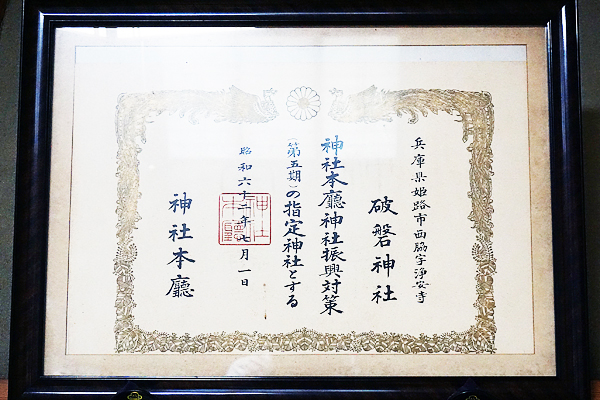 兵庫県姫路市西脇字浄安寺
破磐神社
神社本廳神社振興対策
（第五期）の指定神社とする
昭和六十一年七月一日
神社本廳